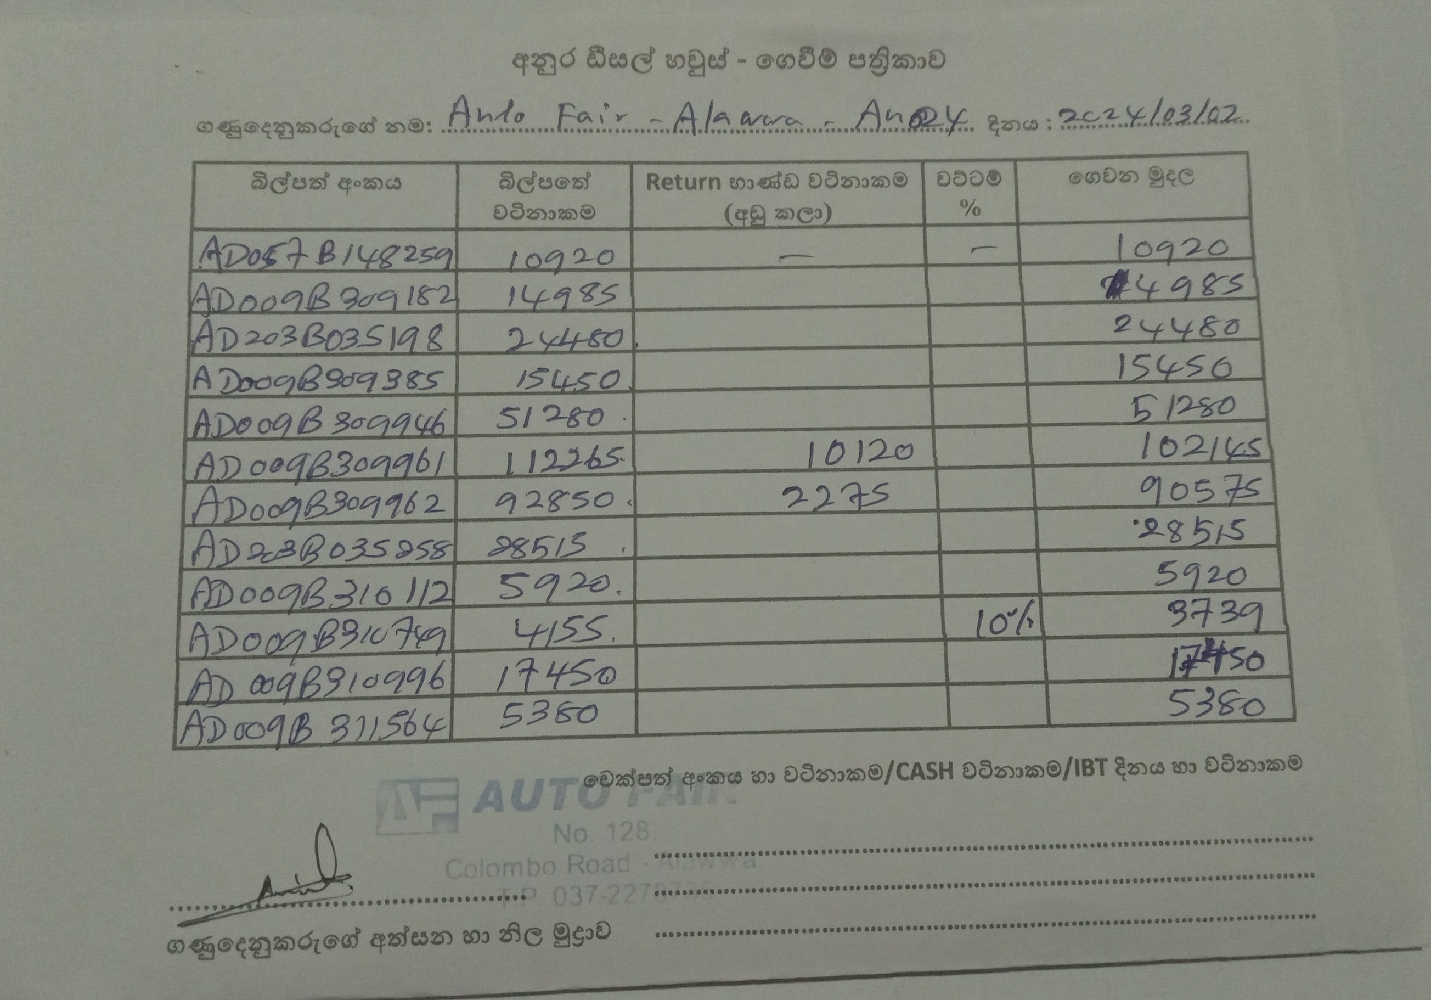 අනුර ඩීසල් හවුස් - ගෙවීම් පත්‍රිකාව
ගණුදෙනුකරුගේ නම: Auto Fair - Alawwa - An024 දිනය : 2024/03/02
බිල්පත් අංකය බිල්පතේ වටිනාකම Return භාණ්ඩ වටිනාකම (අඩු කලා) වට්ටම් % ගෙවන මුදල
AD057B148259 10920 — — 10920
AD009B309182 14985 14985
AD203B035198 24480 24480
AD009B309385 15450 15450
AD009B309946 51280 51280
AD009B309961 112265 10120 102145
AD009B309962 92850 2275 90575
AD203B035258 28515 28515
AD009B310112 5920 5920
AD009B310749 4155 10% 3739
AD009B310996 17450 17450
AD009B311564 5380 5380
චෙක්පත් අංකය හා වටිනාකම/CASH වටිනාකම/IBT දිනය හා වටිනාකම
AUTO FAIR
No. 128
Colombo Road - Alawwa.
T.P. 037-
ගණුදෙනුකරුගේ අත්සන හා නිල මුද්‍රාව